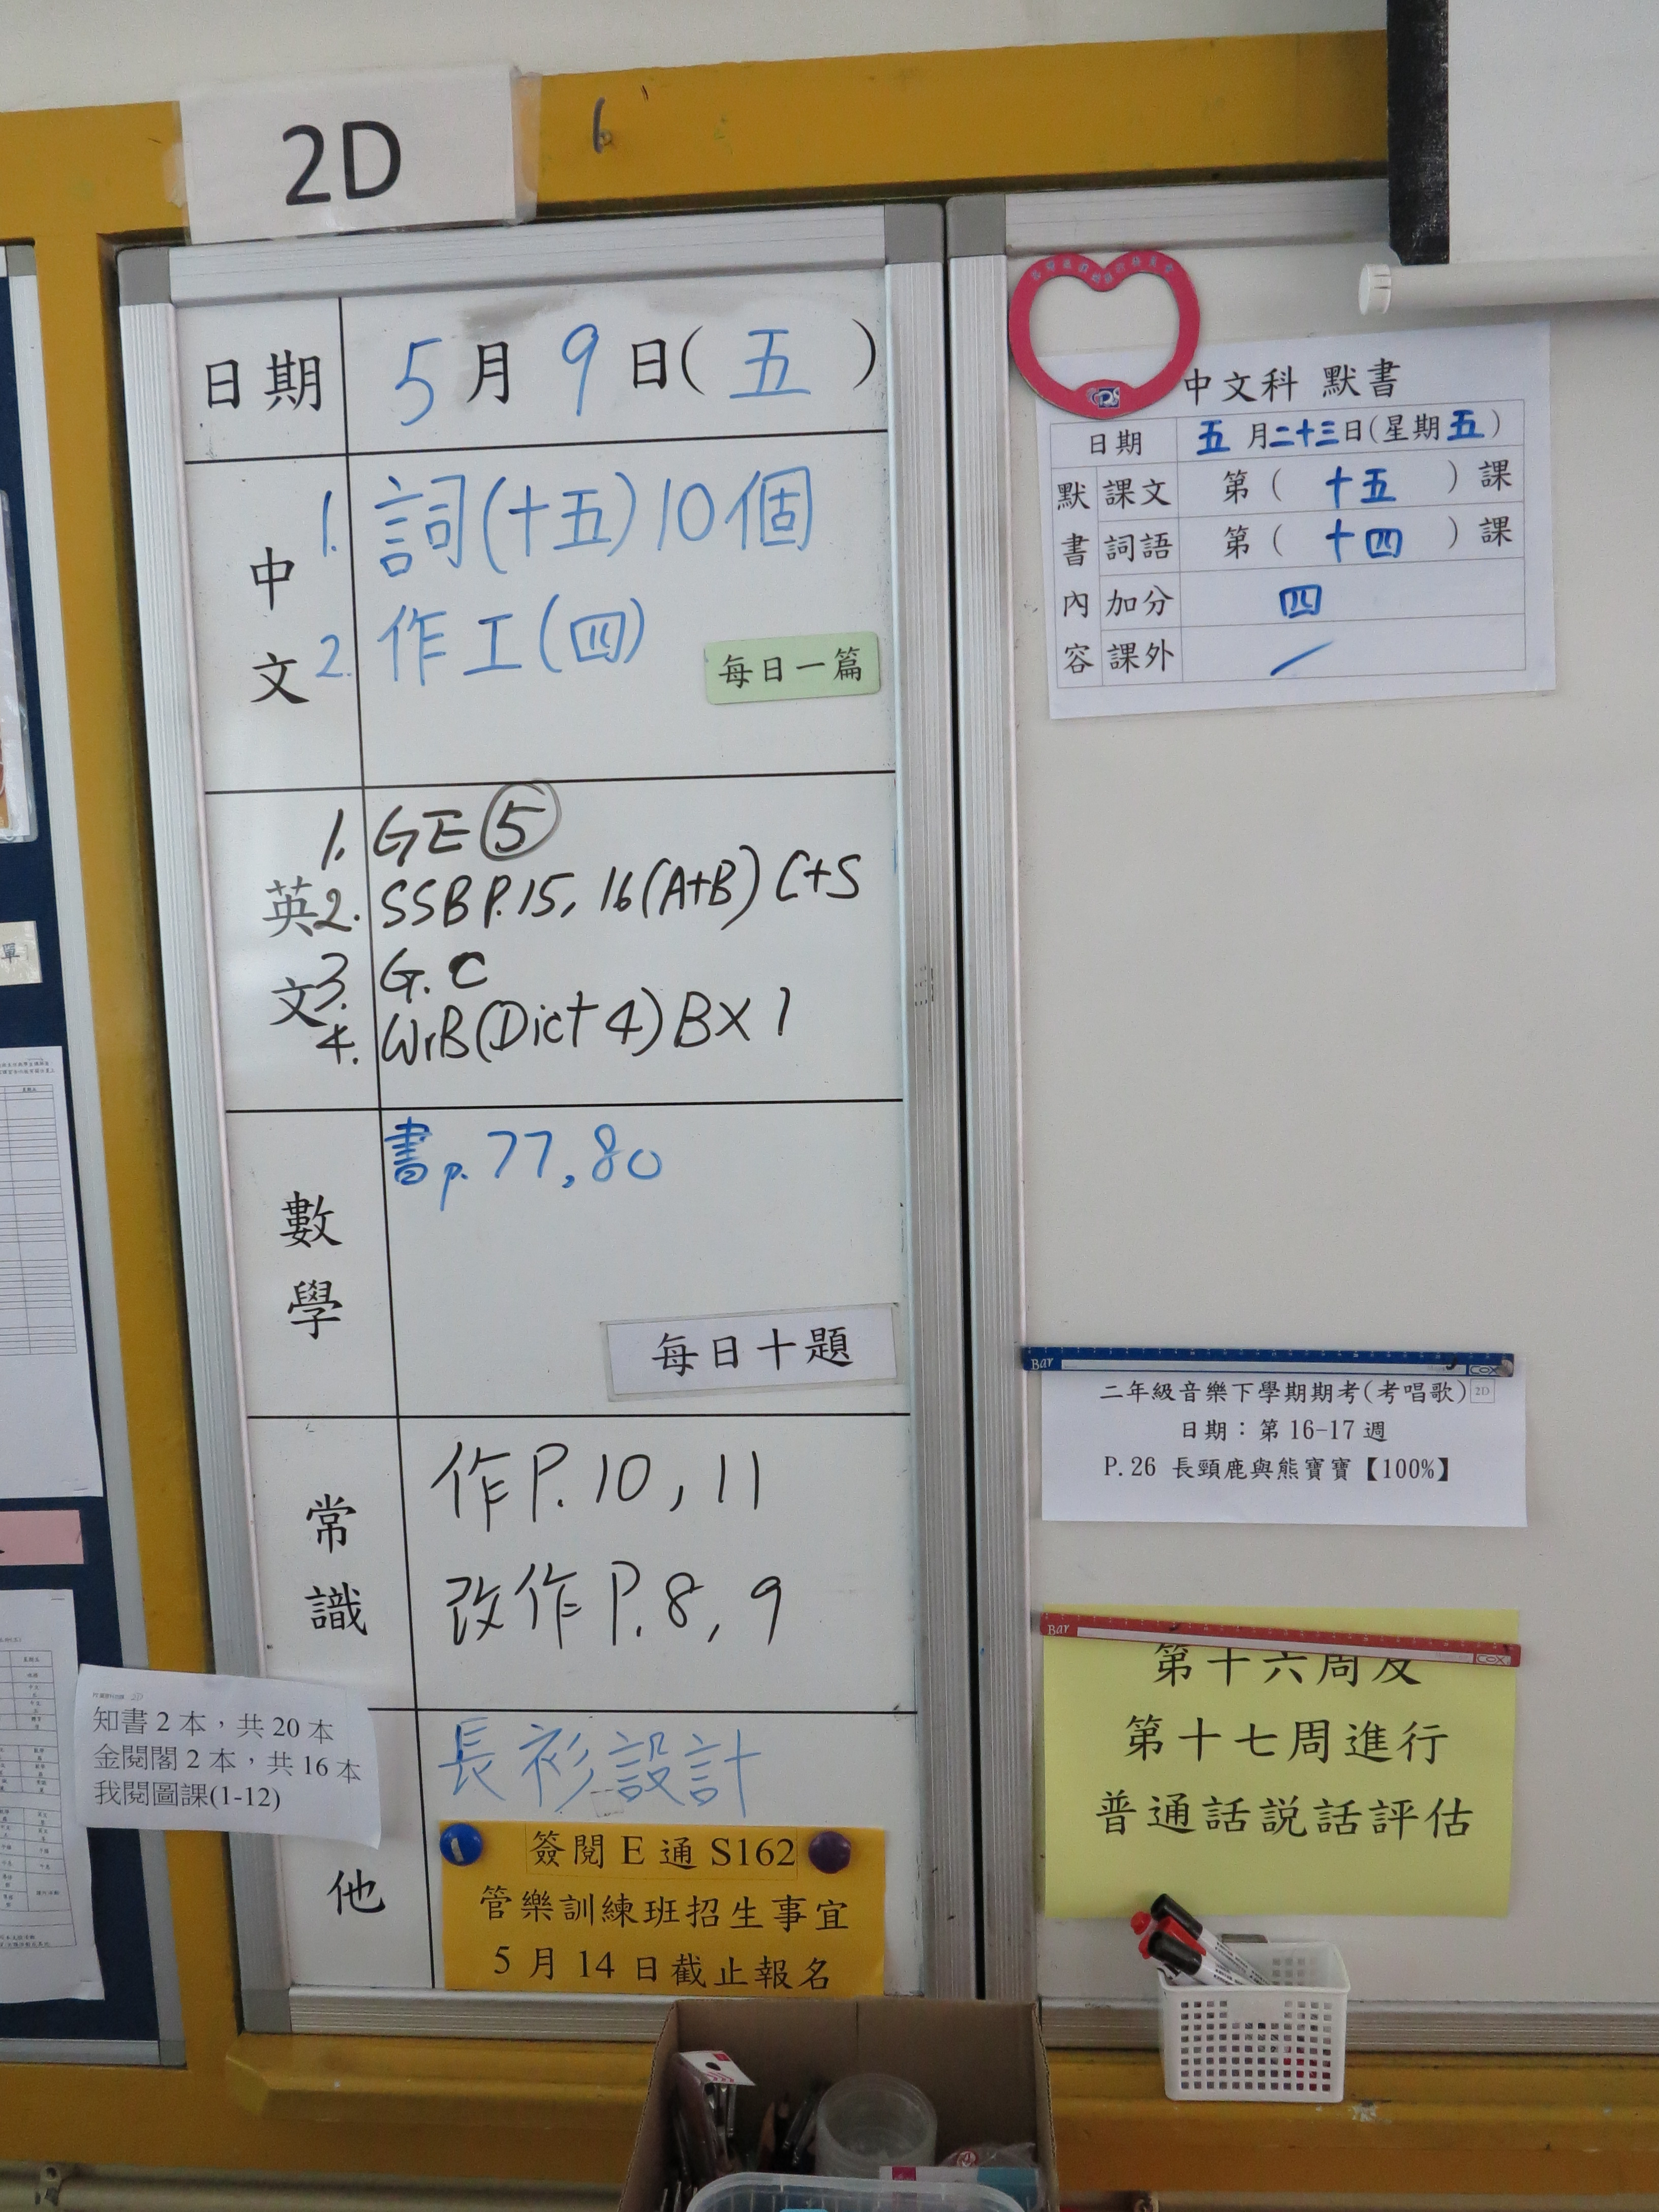 2D
日期 5月9日(五)
中文
1. 詞(十五)10個
2. 作工(四)
每日一篇
英文
1. GE⑤
2. SSB P.15, 16(A+B) C+S
3. G.C
4. WrB(Dict 4) B×1
數學
書p.77,80
每日十題
常識
作P.10,11
改作P.8,9
知書2本，共20本
金閱閣2本，共16本
我閱圖課(1-12)
他
長衫設計
簽閱E通S162
管樂訓練班招生事宜
5月14日截止報名
中文科 默書
日期 五月二十三日(星期五)
默書內容
課文 第(十五)課
詞語 第(十四)課
加分 四
課外 /
Bar COX
二年級音樂下學期期考(考唱歌) 2D
日期：第16-17週
P.26 長頸鹿與熊寶寶【100%】
Bar COX
第十六周及
第十七周進行
普通話說話評估
單